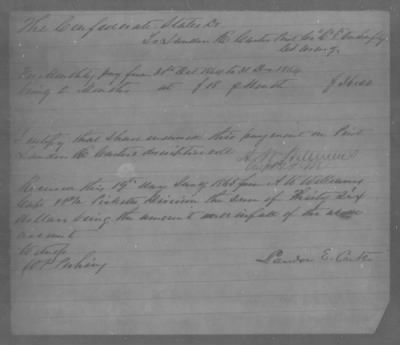 The Confederate States Dr
To Landon E. Carter Pvt Co "C"
For Monthly pay from 31st Oct 1864 to 31 Dec 1864
being 2 Months at $18 p Month $36.00
I certify that I have endorsed this payment on Pvt
Landon E Carter's descriptive roll
A W Williams
Received this 19th day Jany 1865 from A W Williams
Capt Picketts Division the sum of Thirty Six
dollars being the amount and in full of the above
account
Witness
Landon E. Carter